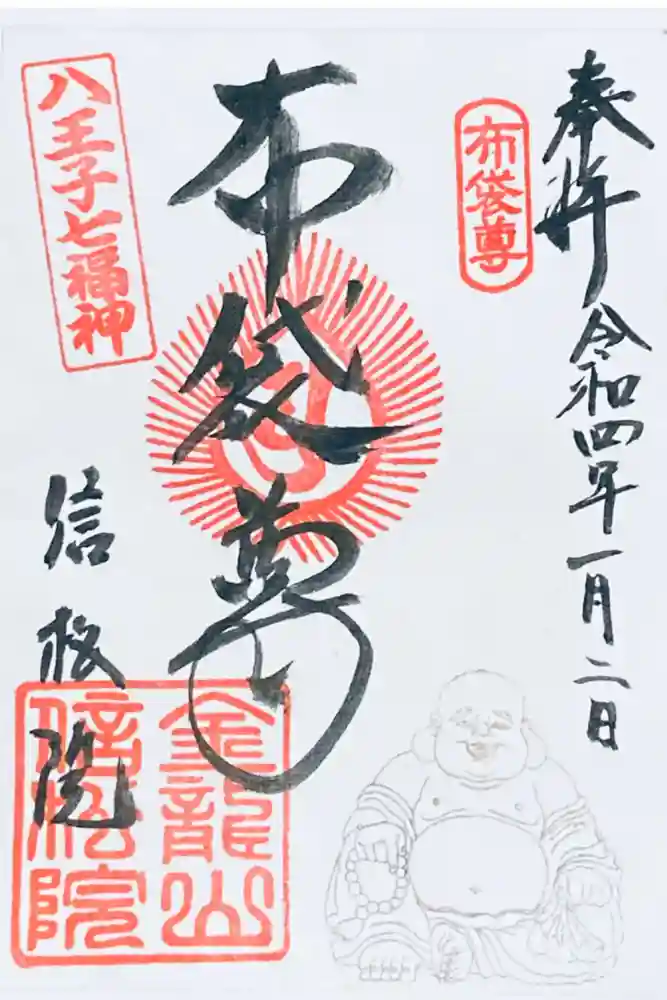 奉拝 令和四年一月二日
布袋尊
布袋尊
八王子七福神
信松院
金龍山信松院